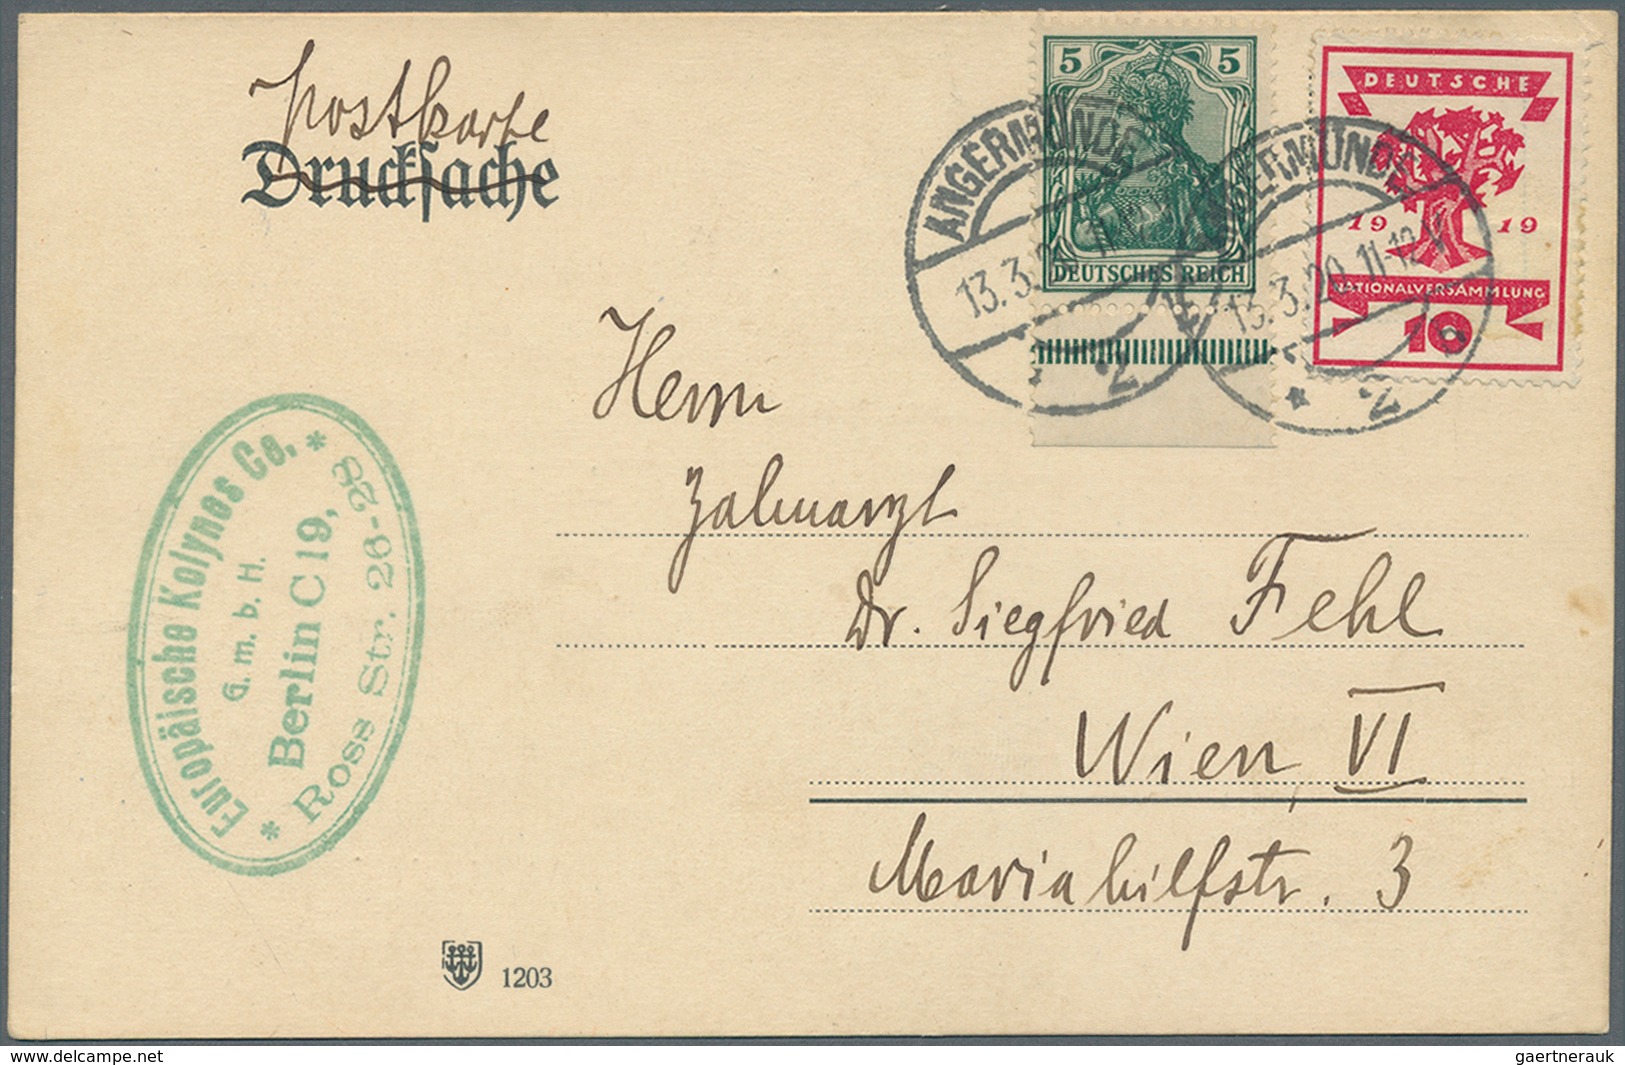 Postkarte
Drucksache
5 5
DEUTSCHES REICH
DEUTSCHE
1919
NATIONALVERSAMMLUNG
10
ANGERMÜNDE
13.3.20 11-12 V
* 2 b
ANGERMÜNDE
13.3.20 11-12 V
* 2 b
Herrn
Zahnarzt
Dr. Siegfried Fehl
Wien VI
Mariahilfstr. 3
Europäische Kolynos Co.
G. m. b. H.
Berlin C 19,
* Ross Str. 26-28 *
1203
delcampe.net
gaertnerauk